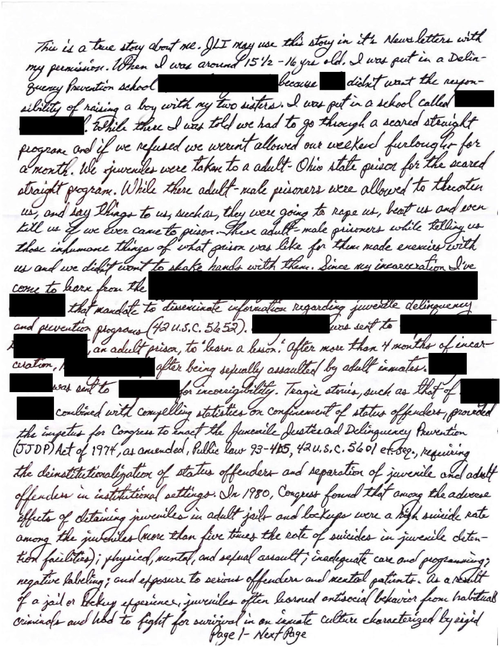 This is a true story about me. JLI may use this story in it's Newsletters with
my permission. When I was around 15½-16 yrs old. I was put in a Delin-
quency Prevention school because didn't want the respon-
sibility of raising a boy with my two sisters. I was put in a school called
. While there I was told we had to go through a scared straight
program and if we refused we werent allowed our weekend furlough for
a month. We juveniles were taken to a adult-Ohio state prison for the scared
straight program. While there adult-male prisoners were allowed to threaten
us, and say things to us, such as, they were going to rape us, beat us and even
kill us if we ever came to prison. These adult-male prisoners while telling us
those inhumane things of what prison was like for them made enemies with
us and we didn't want to shake hands with them. Since my incarceration I've
come to learn from the
that mandate to disseminate information regarding juvenile delinquency
and prevention programs (42 U.S.C. 5652). was sent to
, an adult prison, to "learn a lesson." After more than 4 months of incar-
ceration, after being sexually assaulted by adult inmates.
was sent to for incorrigibility. Tragic stories, such as that of
combined with compelling statistics on confinement of status offenders, provided
the impetus for Congress to enact the Juvenile Justice and Delinquency Prevention
(JJDP) Act of 1974, as amended, Public law 93-415, 42 U.S.C. 5601 et seq., requiring
the deinstitutionalization of status offenders and separation of juvenile and adult
offenders in institutional settings. In 1980, Congress found that among the adverse
effects of detaining juveniles in adult jails and lockups were a high suicide rate
among the juveniles (more than five times the rate of suicides in juvenile deten-
tion facilities); physical, mental, and sexual assault; inadequate care and programming;
negative labeling; and exposure to serious offenders and mental patients. As a result
of a jail or lockup experience, juveniles often learned antisocial behavior from habitual
criminals and had to fight for survival in an inmate culture characterized by rigid
Page 1- Next Page